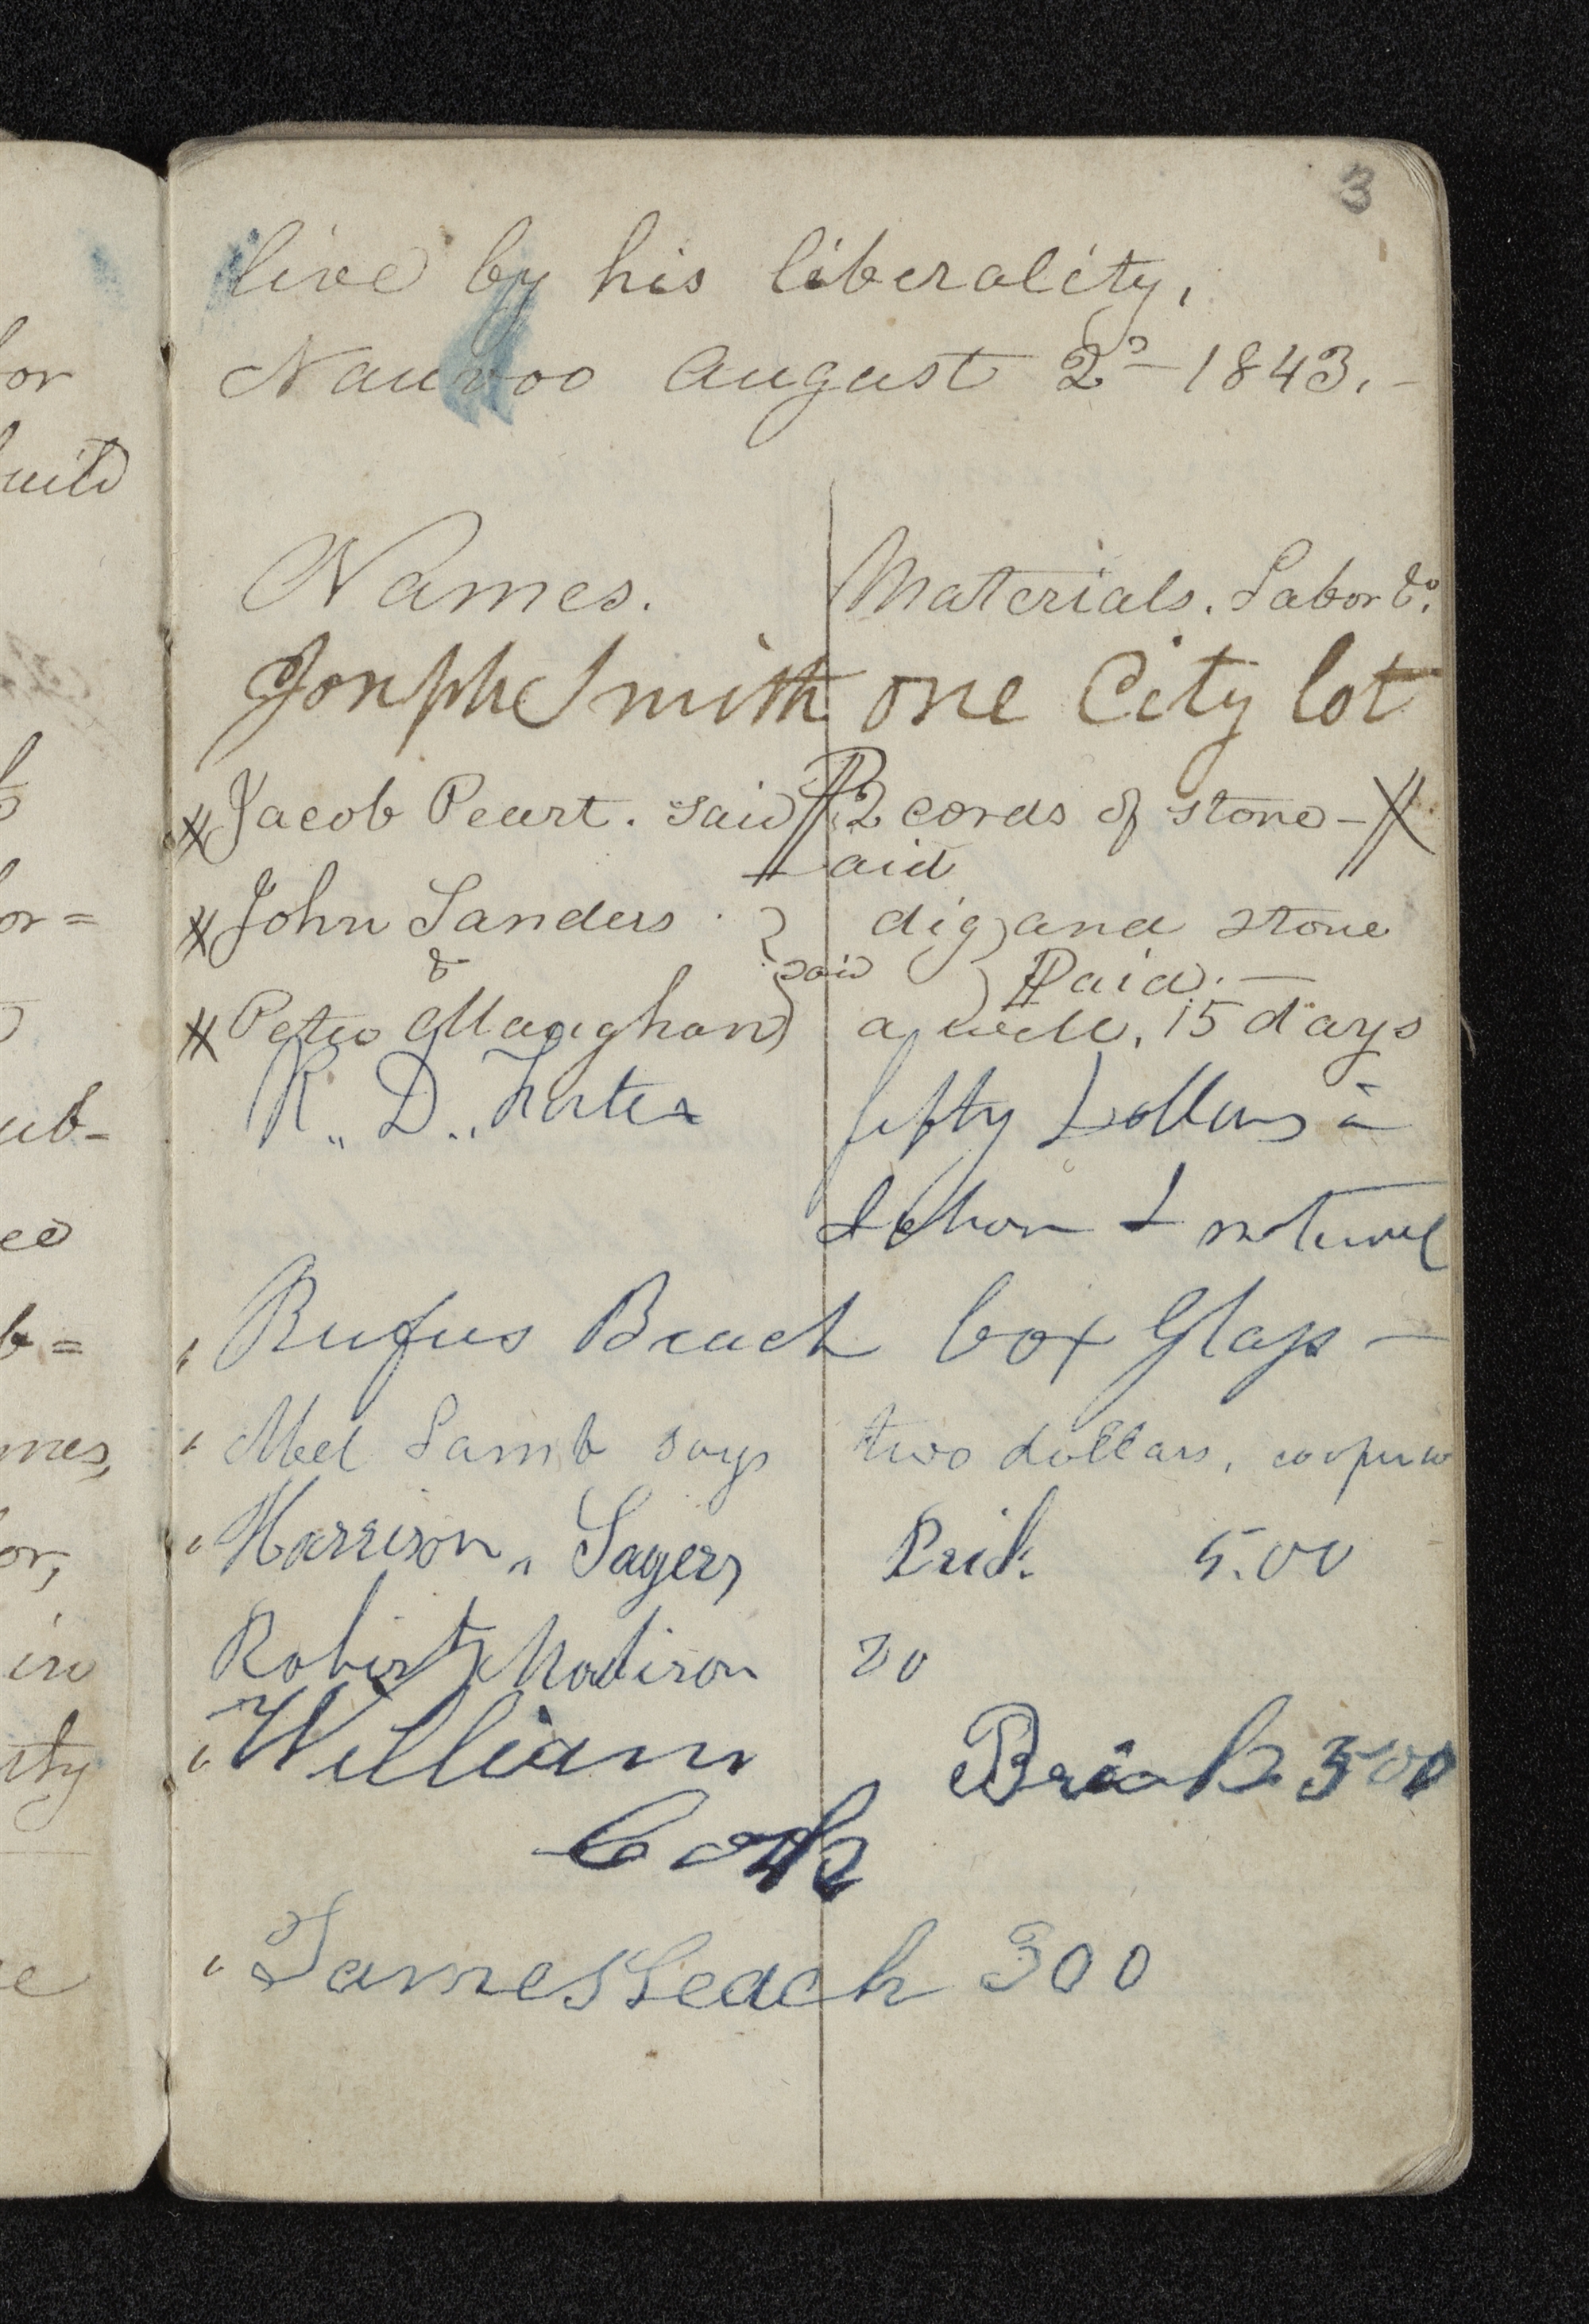 3
live by his liberality,
Nauvoo August 2d 1843. –
Names. Materials. Labor &c.
Joseph Smith one City lot
Jacob Peart. said 2 cords of stone –
Paid
John Sanders . dig and stone
& said Paid. –
Peter Maughan a well, 15 days
R,, D,, Foster fifty Dollars in
&
Rufus Beach box Glass –
Abel Lamb says two dollars,
Harrison,, Sagers 5.00
Robert Madison 20
William Brick 500
Cork
James Leach 300
or
uild
or=
ub-
mes,
or,
in